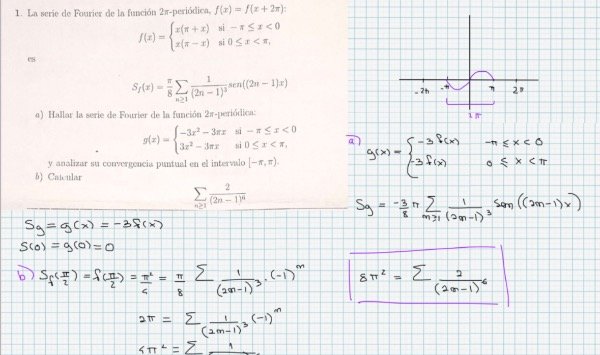 1. La serie de Fourier de la función 2π-periódica, f(x) = f(x + 2π):
f(x) = { x(π + x) si −π ≤ x < 0
x(π − x) si 0 ≤ x < π,
es
S_f(x) = π/8 ∑_{n≥1} 1/(2n − 1)³ sen((2n − 1)x)
a) Hallar la serie de Fourier de la función 2π-periódica:
g(x) = { −3x² − 3πx si −π ≤ x < 0
3x² − 3πx si 0 ≤ x < π,
y analizar su convergencia puntual en el intervalo [−π, π).
b) Calcular
∑_{n≥1} 2/(2n − 1)⁶
-2π -π π 2π
2π
a) g(x) = { -3 f(x) -π ≤ x < 0
-3 f(x) 0 ≤ x < π
Sg = -3/8 π ∑_{m≥1} 1/(2m-1)³ sen((2m-1)x)
Sg = g(x) = -3f(x)
S(0) = g(0) = 0
b) S_f(π/2) = f(π/2) = π²/4 = π/8 ∑ 1/(2m-1)³ · (-1)^m
2π = ∑ 1/(2m-1)³ · (-1)^m
4π² = ∑ 1
8π² = ∑ 2/(2m-1)⁶